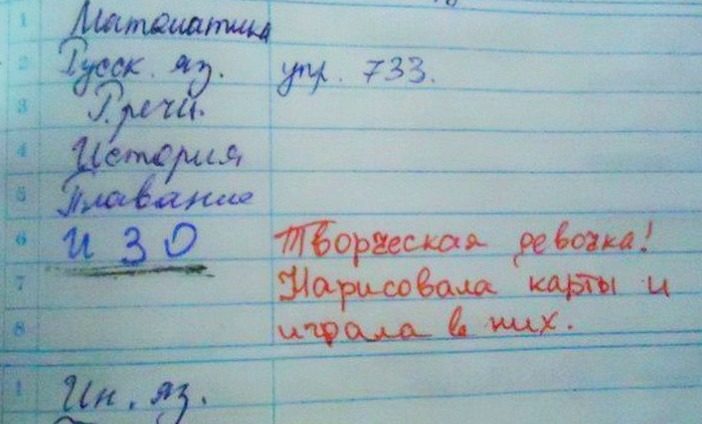 1 Математика
2 Русск. яз. упр. 733.
3 Р.речи.
4 История
5 Плавание
6 ИЗО Творческая девочка!
7 Нарисовала карты и
8 играла в них.
1 Ин. яз.